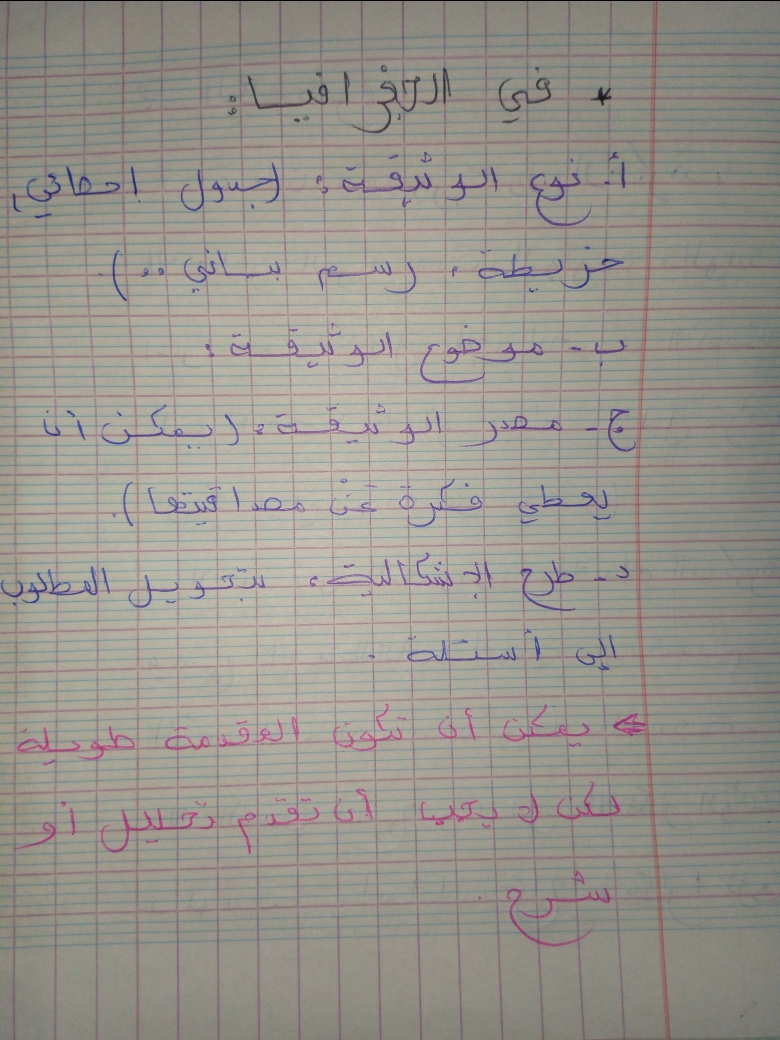 * في الجغرافيا:
أ. نوع الوثيقة: (جدول احصائي،
خريطة، رسم بياني ..).
ب- موضوع الوثيقة:
ج- مصدر الوثيقة: (يمكن أن
يعطي فكرة عن مصداقيتها).
د- طرح الإشكالية، بتحويل المطلوب
إلى أسئلة.
⇐ يمكن أن تكون المقدمة طويلة
لكن لا يجب أن تقدم تحليل أو
شرح.